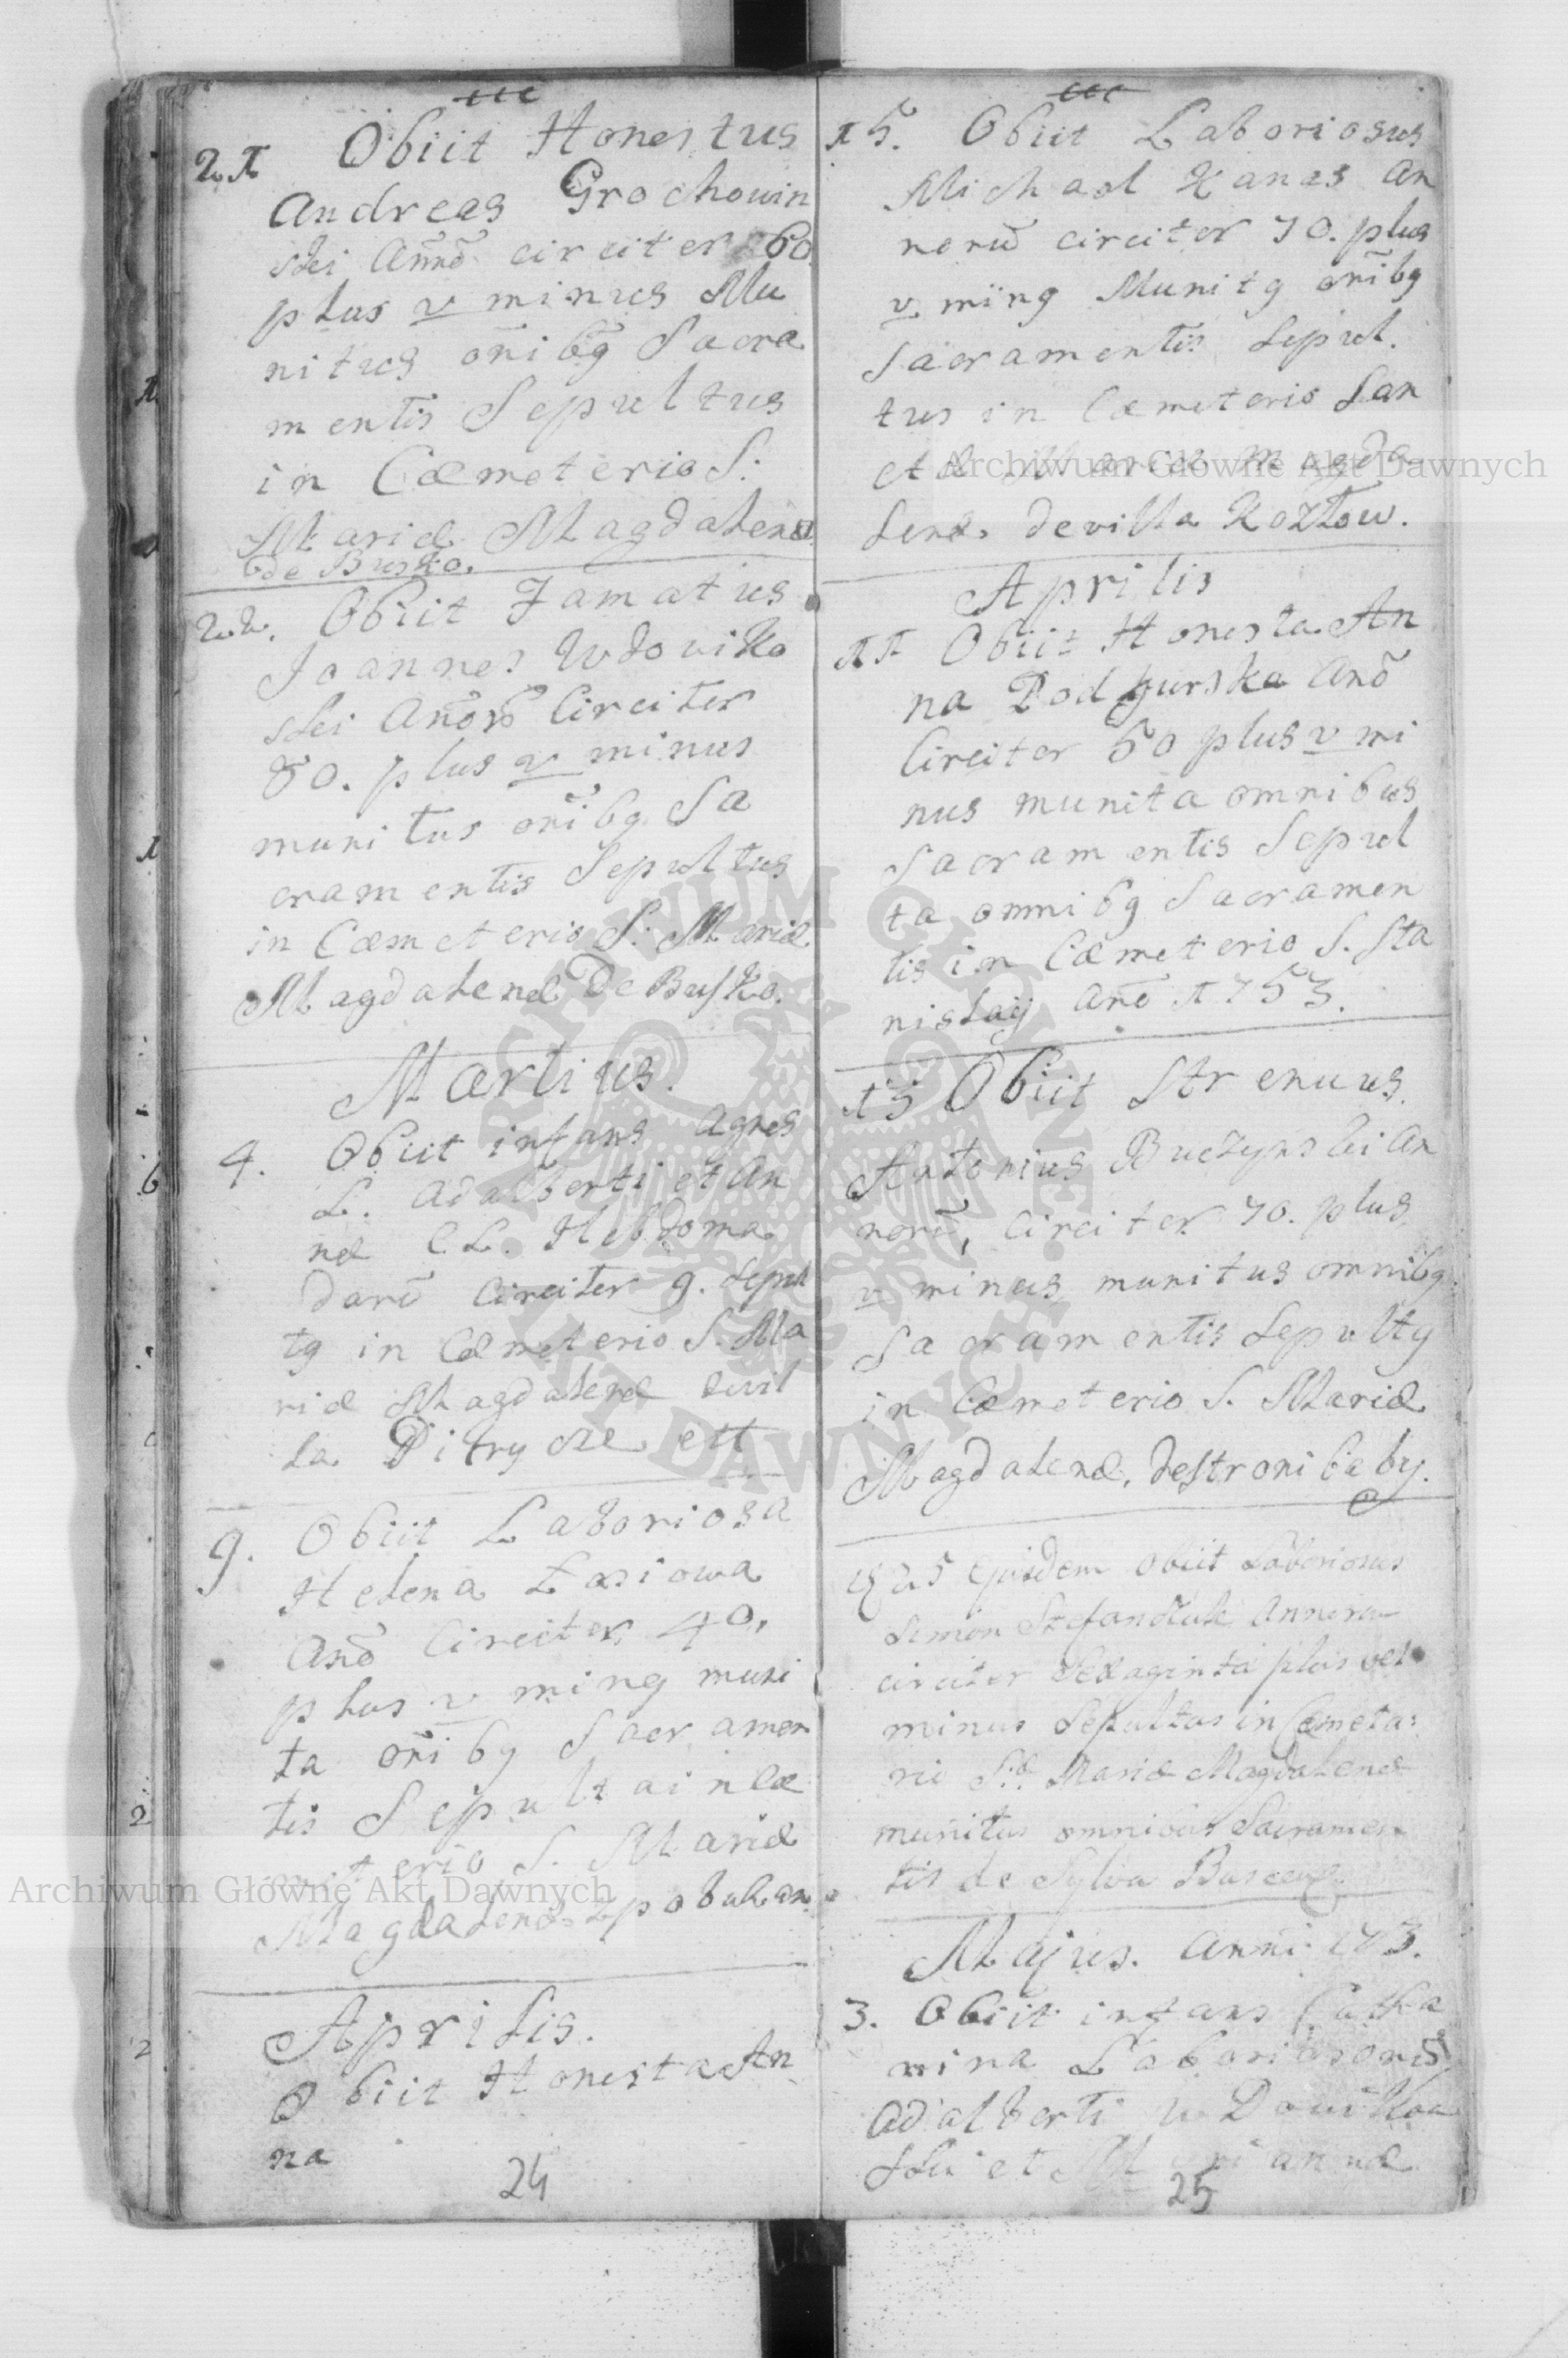 2.1 Obiit Honestus
Andreas Grochowin
skei Annō circiter 60
plus v minus Mu
nitus oñibg Sacra
mentis Sepultus
in Cœmeterio S:
Mariæ Magdalenæ
de Busko.
22. Obiit Famatus
Joannes Wdowiko
skei Anorō Circiter
80. plus v minus
munitus oñibg Sa
cramentis Sepultus
in Cœmeterio S: Mariæ
Magdalenæ De Busko.
Martius.
4. Obiit infans Agnes
L. Adalberti et An
næ C.L. Hebdoma
darū Circiter 9. Sepul
tg in Cœmeterio S. Ma
riæ Magdalenæ devil
la
9. Obiit Laboriosa
Helena Łosiowa
Anō Circiter 40.
plus v ming muni
ta oñibg Sacramen
tis Sepulta in Cœ
meterio S. Mariæ
Magdalenæ
Aprilis.
Obiit Honesta An
na
24
15. Obiit Laboriosus
Michael Kanas An
norū circiter 70. plus
v ming Munitg oñibg
Sacramentis Sepul.
tus in Cœmeterio San
ctæ Mariæ Magda
lenæ. de villa Kozłow.
Aprilis
11 Obiit Honesta An
na Podgurska Anō
Circiter 60 plus v mi
nus munita omnibus
Sacramentis Sepul
ta omnibg Sacramen
tis in Cœmeterio S. Sta
nislaij Anō 1753.
13 Obiit Strenuus
Antonius Buczynski An
norū, circiter 70. plus
v minus munitus omnibg
Sacramentis Sepultg
in Cœmeterio S. Mariæ
Magdalenæ.
25 ejusdem obiit Laboriosus
Simon Stefandluk Annorum
circiter Sexaginta plus vel
minus Sepultus in Cœmeta:
rio S:æ Mariæ Magdalenæ
munitus omnibus Sacramen
tis de Sylva
Majus. Anni 1753.
3. Obiit infans Catha
rina Laboriosorū
Adalberti
et
25
Archiwum Główne Akt Dawnych
Archiwum Główne Akt Dawnych
ARCHIWUM GŁÓWNE AKT DAWNYCH